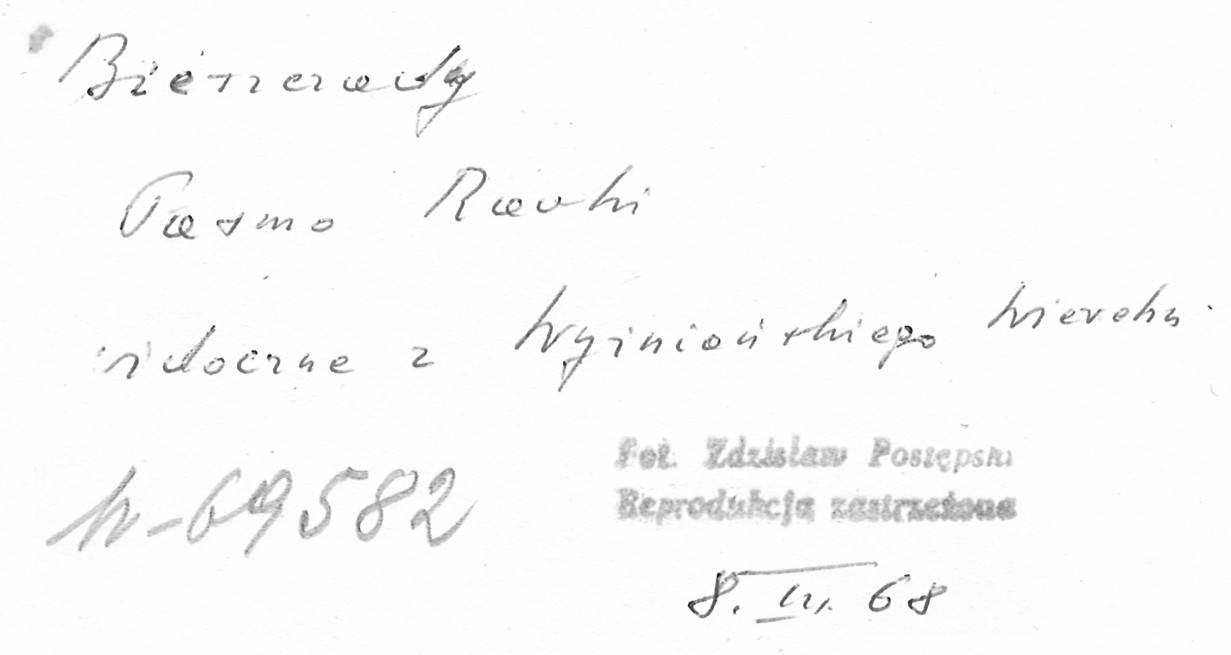 Bieszczady
Pasmo Rawki
widoczne z Wyżniańskiego Wierchu
Fot. Zdzisław Postępski
Reprodukcja zastrzeżona
W-69582
8. III. 68